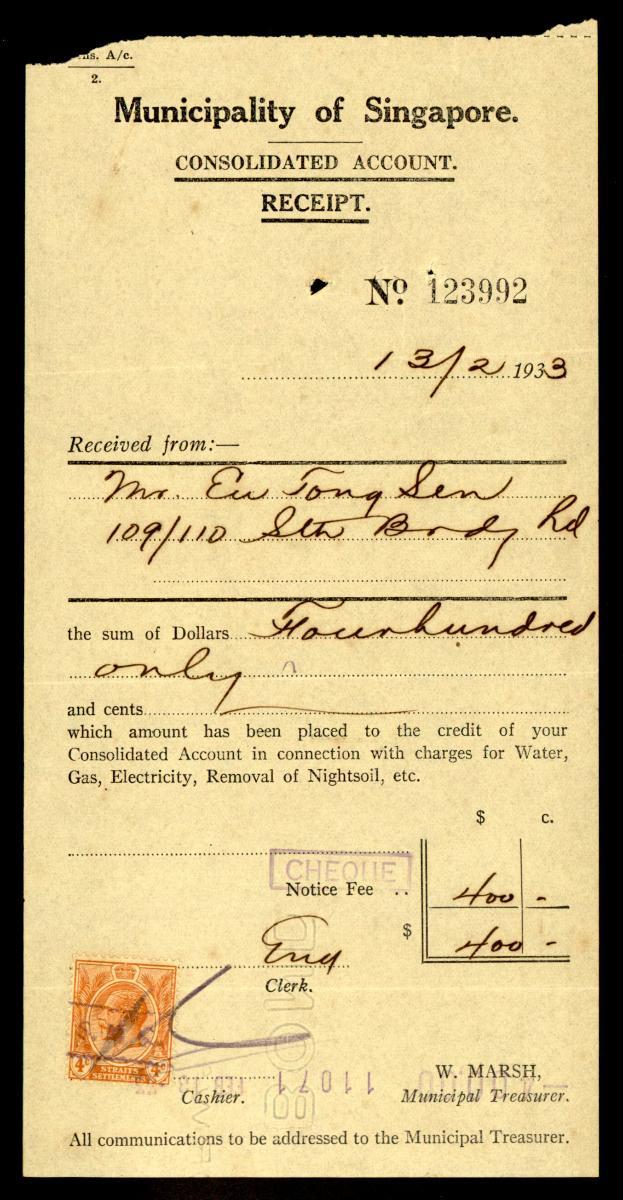 A/c.
2.
Municipality of Singapore.
CONSOLIDATED ACCOUNT.
RECEIPT.
No. 123992
13/2 1933
Received from:—
Mr. Eu Tong Sen
109/110 Sth Brdg Rd
the sum of Dollars Four hundred
only
and cents
which amount has been placed to the credit of your
Consolidated Account in connection with charges for Water,
Gas, Electricity, Removal of Nightsoil, etc.
$ c.
CHEQUE
Notice Fee .. 400 -
$ 400 -
Clerk.
4c 4c
STRAITS
SETTLEMENTS
W. MARSH,
FEB 13 11071
Cashier. Municipal Treasurer.
All communications to be addressed to the Municipal Treasurer.